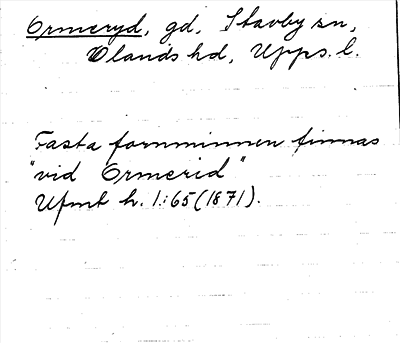 Ormeryd, gd, Stavby sn,
Olands hd, Upps. l.
Fasta fornminnen finnas
"vid Ormerid"
Ufmt h. 1:65 (1871).